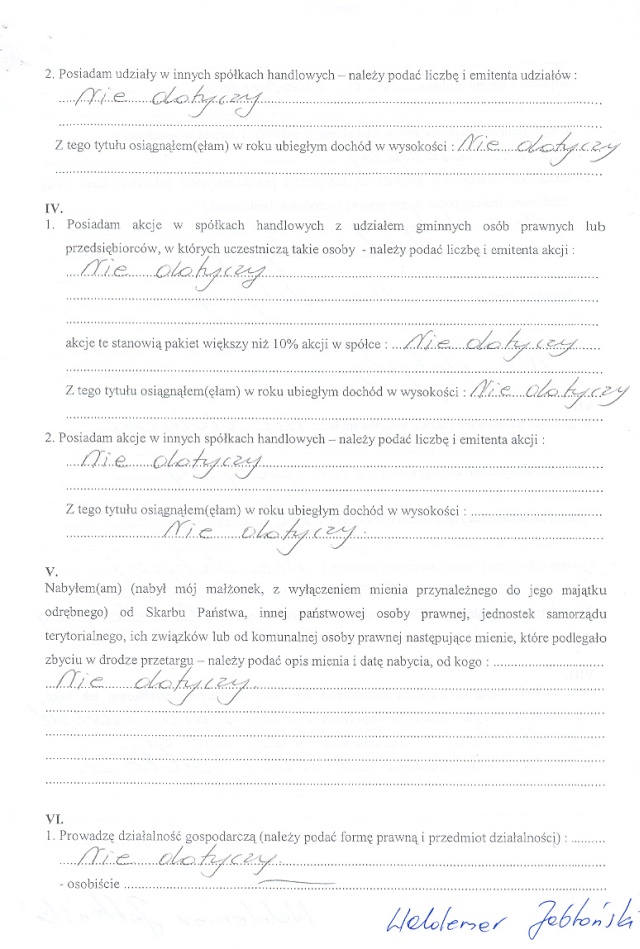 2. Posiadam udziały w innych spółkach handlowych – należy podać liczbę i emitenta udziałów :
Nie dotyczy
Z tego tytułu osiągnąłem(ęłam) w roku ubiegłym dochód w wysokości : Nie dotyczy
IV.
1. Posiadam akcje w spółkach handlowych z udziałem gminnych osób prawnych lub
przedsiębiorców, w których uczestniczą takie osoby - należy podać liczbę i emitenta akcji :
Nie dotyczy
akcje te stanowią pakiet większy niż 10% akcji w spółce : Nie dotyczy
Z tego tytułu osiągnąłem(ęłam) w roku ubiegłym dochód w wysokości : Nie dotyczy
2. Posiadam akcje w innych spółkach handlowych – należy podać liczbę i emitenta akcji :
Nie dotyczy
Z tego tytułu osiągnąłem(ęłam) w roku ubiegłym dochód w wysokości :
Nie dotyczy.
V.
Nabyłem(am) (nabył mój małżonek, z wyłączeniem mienia przynależnego do jego majątku
odrębnego) od Skarbu Państwa, innej państwowej osoby prawnej, jednostek samorządu
terytorialnego, ich związków lub od komunalnej osoby prawnej następujące mienie, które podlegało
zbyciu w drodze przetargu – należy podać opis mienia i datę nabycia, od kogo :
Nie dotyczy
VI.
1. Prowadzę działalność gospodarczą (należy podać formę prawną i przedmiot działalności) :
Nie dotyczy.
- osobiście
Waldemar Jabłoński